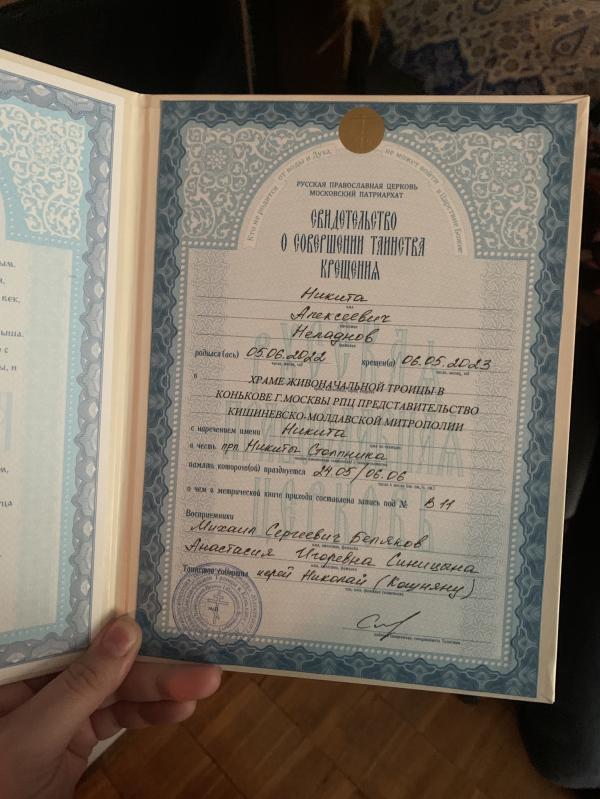 Кто не родится от воды и Духа, не может войти в Царствие Божие
РУССКАЯ ПРАВОСЛАВНАЯ ЦЕРКОВЬ
МОСКОВСКИЙ ПАТРИАРХАТ
СВИДЕТЕЛЬСТВО
О СОВЕРШЕНИИ ТАИНСТВА
КРЕЩЕНИЯ
Никита
имя
Алексеевич
отчество
Неладнов
фамилия
родился (ась) 05.06.2022 крещен(а) 06.05.2023
число, месяц, год число, месяц, год
в ХРАМЕ ЖИВОНАЧАЛЬНОЙ ТРОИЦЫ В
КОНЬКОВЕ Г.МОСКВЫ РПЦ ПРЕДСТАВИТЕЛЬСТВО
КИШИНЕВСКО-МОЛДАВСКОЙ МИТРОПОЛИИ
с наречением имени Никита
в честь прп. Никиты Столпника
память которого(ой) празднуется 24.05/06.06
о чем в метрической книге прихода составлена запись под № В11
Восприемники
Михаил Сергеевич Беляков
имя, отчество, фамилия
Анастасия Игоревна Синицына
имя, отчество, фамилия
Таинство совершил иерей Николай (Кошняну)